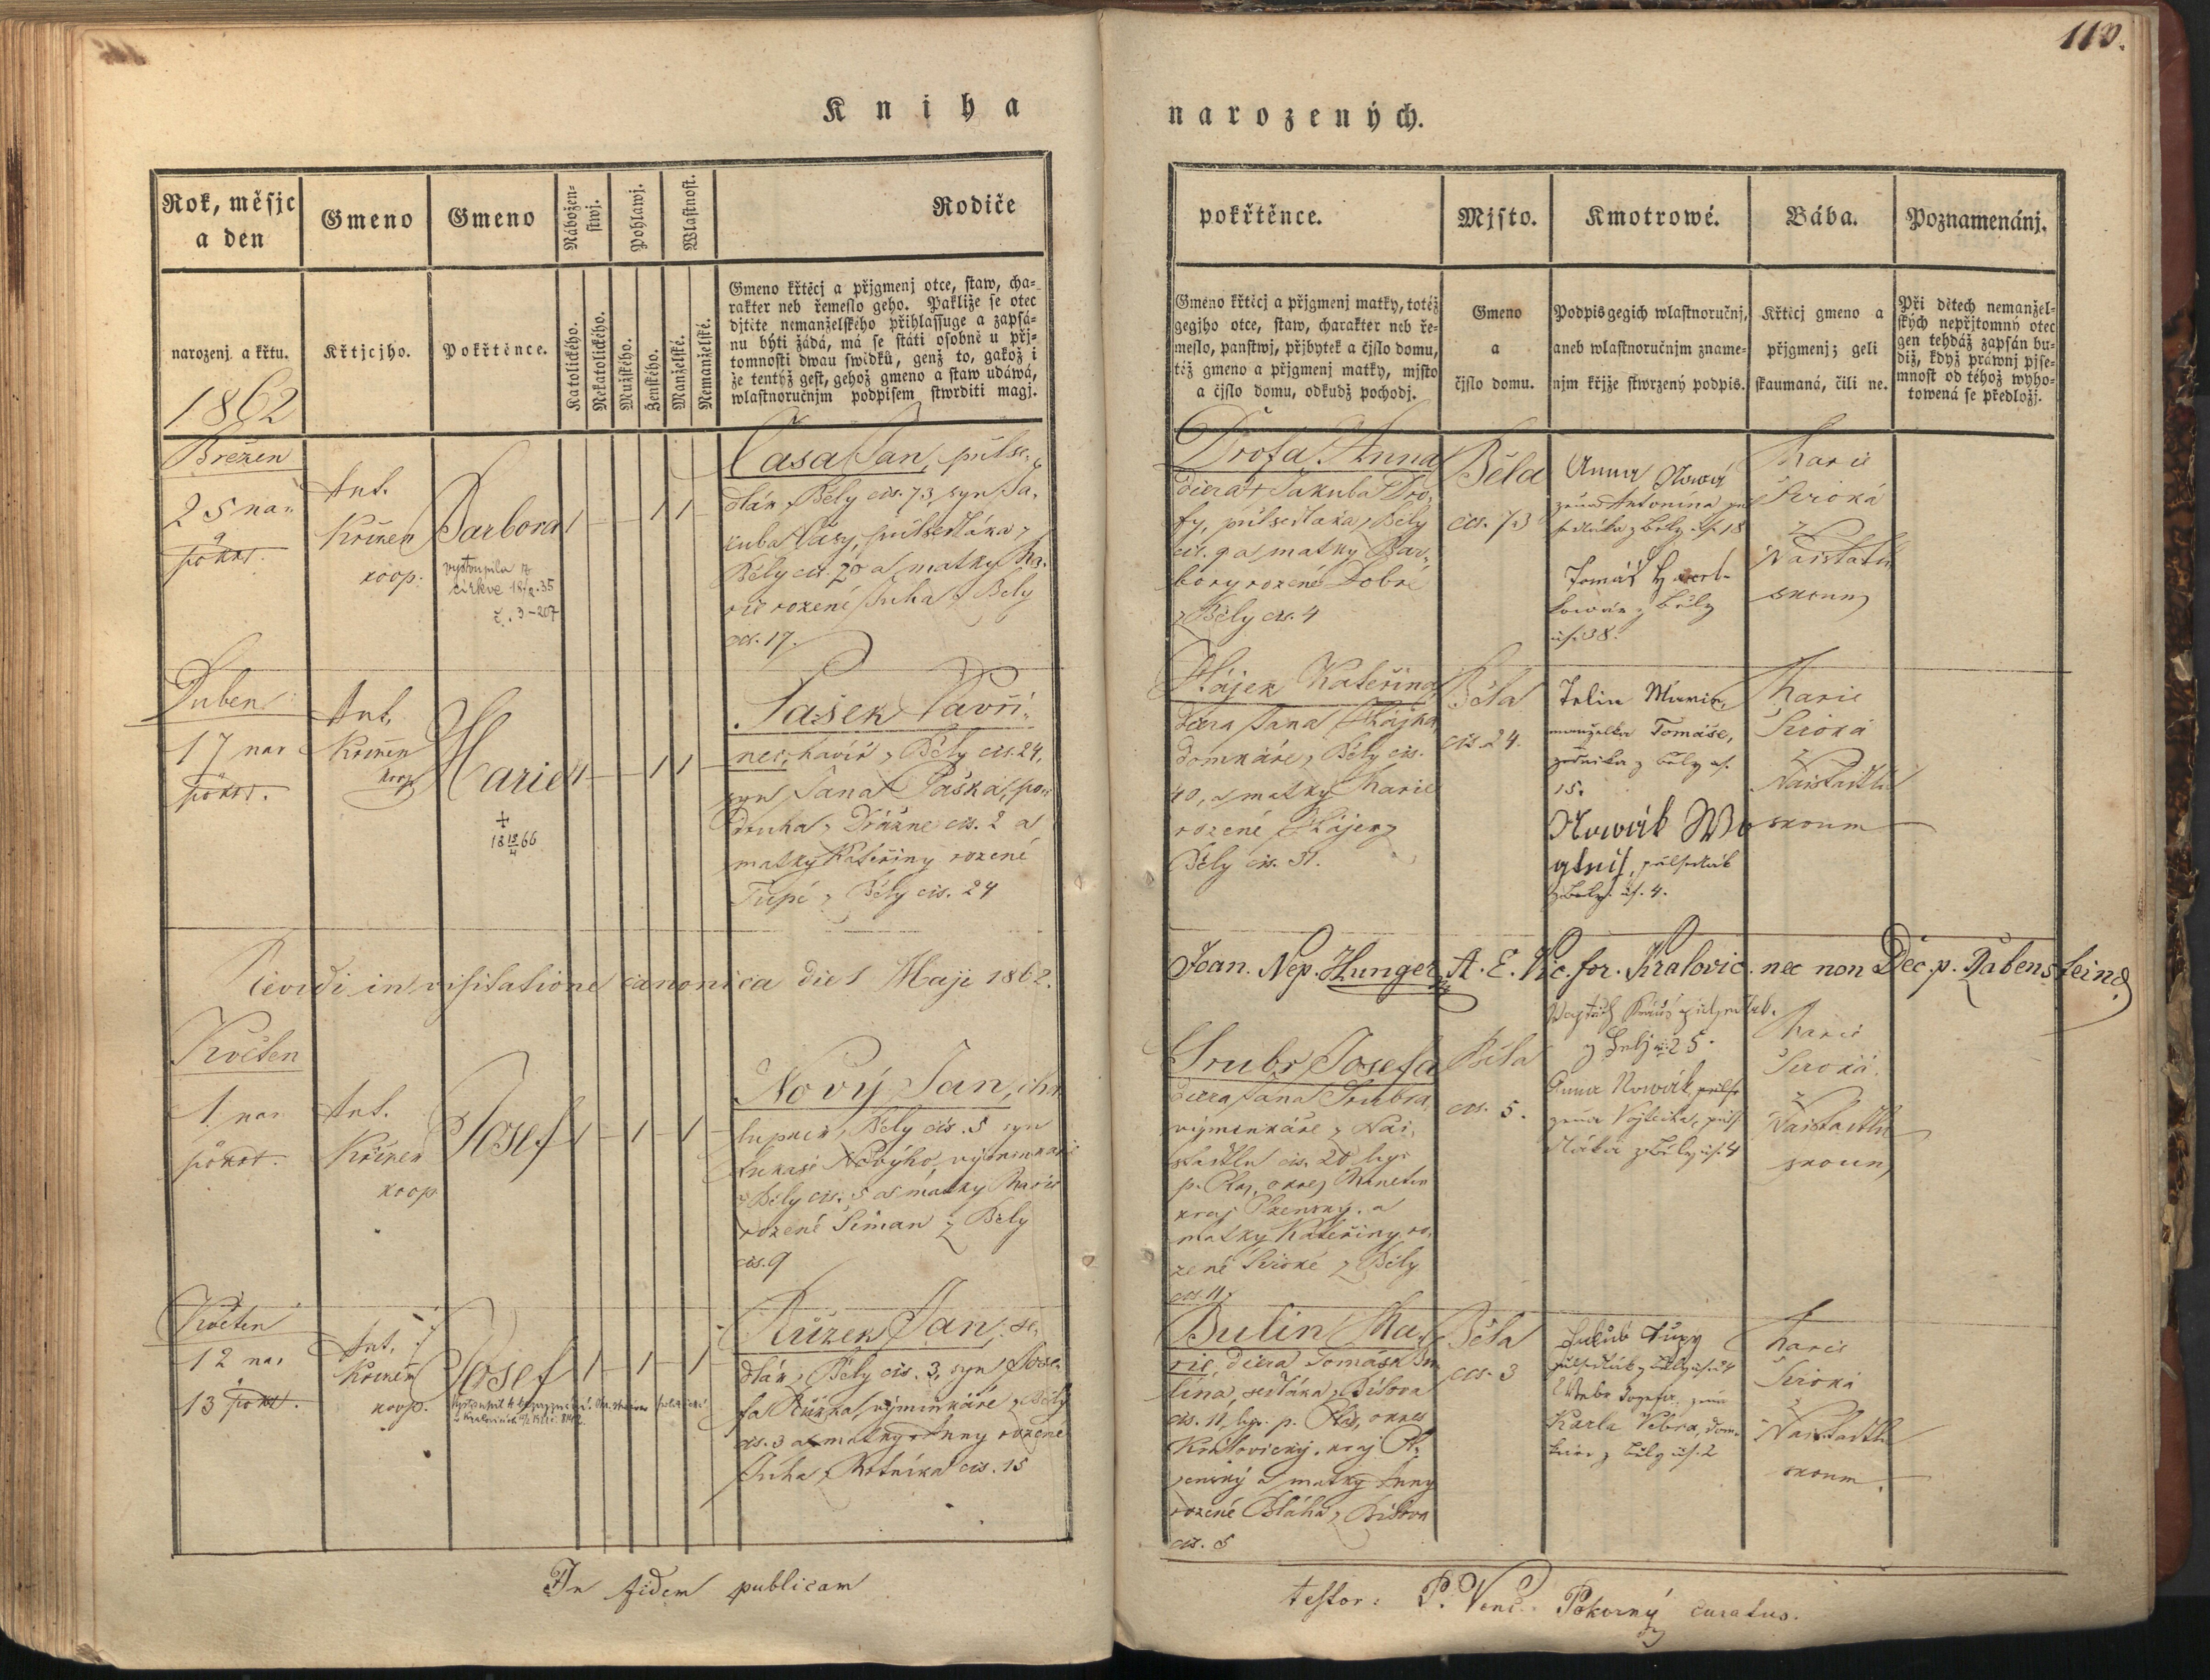 110.
Kniha
narozených.
Rok, měsjc
a den
narozenj a křtu.
1862
Gmeno
Křtjcjho.
Gmeno
Pokřtěnce.
Nábožen-
stwj.
Katolického.
Nekatolického.
Pohlawj.
Mužského.
Ženského.
Wlastnost.
Manželské.
Nemanželské.
Rodiče
Gmeno křtěcj a přjgmenj otce, staw, cha-
rakter neb řemeslo geho. Pakliže se otec
djtěte nemanželského přihlassuge a zapsá-
nu býti žádá, má se státi osobně u přj-
tomnosti dwau swědků, genž to, gakož i
že tentýž gest, gehož gmeno a staw udáwá,
wlastnoručnjm podpisem stwrditi magj.
pokřtěnce.
Gmeno křtěcj a přjgmenj matky, totéž
gegjho otce, staw, charakter neb ře-
meslo, panstwj, přjbytek a čjslo domu,
též gmeno a přjgmenj matky, mjsto
a čjslo domu, odkudž pochodj.
Mjsto.
Gmeno
a
čjslo domu.
Kmotrowé.
Podpis gegich wlastnoručnj,
aneb wlastnoručnjm zname-
njm křjže stwrzený podpis.
Bába.
Křtěcj gmeno a
přjgmenj; geli
skaumaná, čili ne.
Poznamenánj.
Při dětech nemanžel-
ských nepřjtomný otec
gen tehdáž zapsán bu-
diž, když práwnj pjse-
mnost od téhož wyho-
towená se předložj.
Březen
25 nar.
pokřt.
Ant.
Křižen
koop.
Barbora
vystoupila z
církve 18/2.35
č. 3-207
1 1 1
Vasa Jan, půlse-
dlák z Běly čís. 73, syn Ja-
kuba Vasy, půlsedláka z
Běly čís. 20 a matky Ma-
rie rozené Juha z Bely
čis. 17.
Drofa Anna
dcera + Jakuba Dro-
fy, půlsedláka z Bely
čís. 9 a matky Bar-
bory rozené Dobré
z Běly čís. 4
Běla
čís. 73
Anna Nowá
žena Antonína
z Bely čís. 18
Tomáš
z Běly
čís. 38.
Marie
Široká
z
skoum
Duben
17 nar
pokřt.
Ant.
Křižen
koop
Marie
+
18 18/4 66
1 1 1
Pašek Vavři-
nec, havíř z Běly čís. 24,
syn Jana Paška, po-
druha z Drážne čís. 2 a
matky Kateřiny rozené
Tupé z Běly čís. 24
Hájek Kateřina
dcera Jana Hájka
domkáře z Bělý čís.
40, a matky Marie
rozené Hájek z
Běly čís. 31.
Běla
čís. 24.
Marie,
manželka Tomáše,
z Běly čs.
15.
Nowák Wo
z Bely čís. 4.
Marie
Široká
z
skoum
Revidi in visitatione canonica die 1 Maji 1862.
Joan. Nep. Hunger A. E. Vic. for. Kralovic. nec non Dec. p. Rabensteind
Květen
1 nar
pokřt.
Ant.
Křižen
koop
Josef
1 1 1
Nový Jan, cha-
lupník z Běly čís. 5 syn
Lukáše Nového, výminkáře
z Běly čís. 5 a matky Marie
rozené Šiman z Běly
čís. 9
Srubr Josefa
dcera Jana Srubra,
výminkáře z
čís. 20
p. Plas, okres Manetín
kraj Plzenský, a
matky Kateřiny ro-
zené Široké z Běly
čís. 11.
Běla
čís. 5.
z Bely čís. 25.
Anna Nowák
žena Vojtěcha, půlse-
dláka z Běly čís. 4
Marie
Široká
z
skoum
Květen
12 nar
13 pokř.
Ant.
Křižen
koop.
Josef
1 1 1
Růžek Jan, se-
dlák z Běly čís. 3, syn Jose-
fa Růžka, výminkáře z Běly
čís. 3 a matky Anny rozené
Juha z Mrtníka čís. 15
Bulín Ma-
rie, dcera Tomáše Bu-
lína, sedláka z Bílova
čís. 11, p. Plas, okres
Kralovický, kraj Pl-
zenský a matky Anny
rozené Bláha z Bílova
čís. 5
Běla
čís. 3
Jakub Tupý
půlsedlák z Běly čís. 24
Webr Jozefa, žena
Karla Vébra, dom-
káře z Běly čís. 2
Marie
Široká
z
skoum
In fidem publicam
testor: P. Venc. Pokorný curatus.